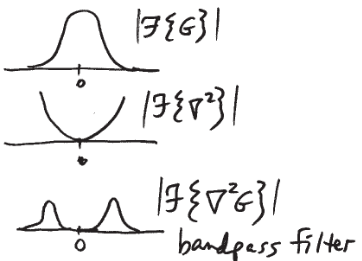 |F{G}|
0
|F{∇²}|
0
|F{∇²G}|
0
bandpass filter